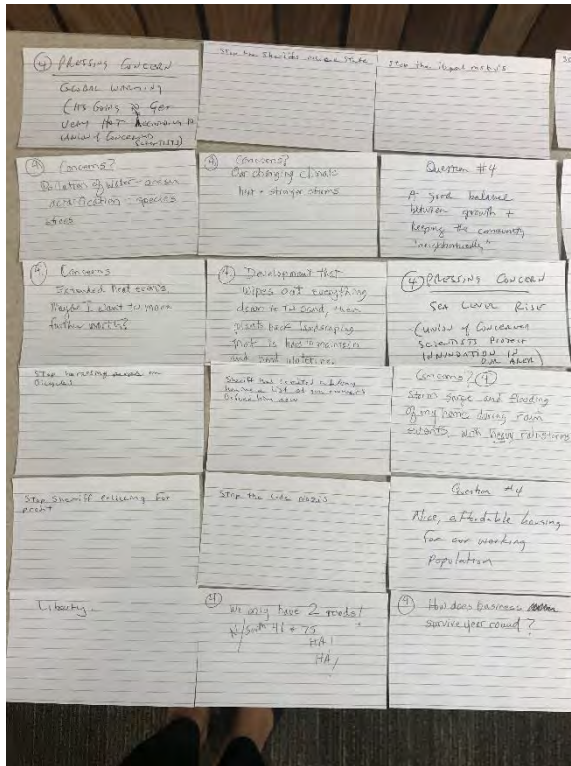 ④ PRESSING CONCERN
GLOBAL WARMING
(ITS GOING TO GET
VERY HOT ACCORDING TO
UNION OF CONCERNED
SCIENTISTS)
Stop the Sheriffs State
Stop the illegal
④ Concerns?
Pollution of water - ocean
acidification - species
stress
④ Concerns?
Our changing climate
hot + stronger storms
Question #4
A good balance
between growth +
keeping the community
"neighborly"
④ Concerns
Extended heat
Maybe I want to move
further north?
④ Development that
wipes out everything
down to sand, then
puts back landscaping
that is hard to maintain
and
④ PRESSING CONCERN
SEA LEVEL RISE
(UNION OF CONCERNED
SCIENTISTS
INNUNDATION IN
OUR AREA)
Stop harassing people on
Bicycles
Sheriff has created
a list of
Concerns? ④
Storm surge and flooding
of my home during rain
events with heavy rainstorms
Stop Sherriff Policing For
profit
Stop the code nazis
Question #4
Nice, affordable housing
for our working
Population
Liberty
④ We only have 2 roads!
N/South 41 + 75
HA!
HA!
④ How does Business
survive year round?